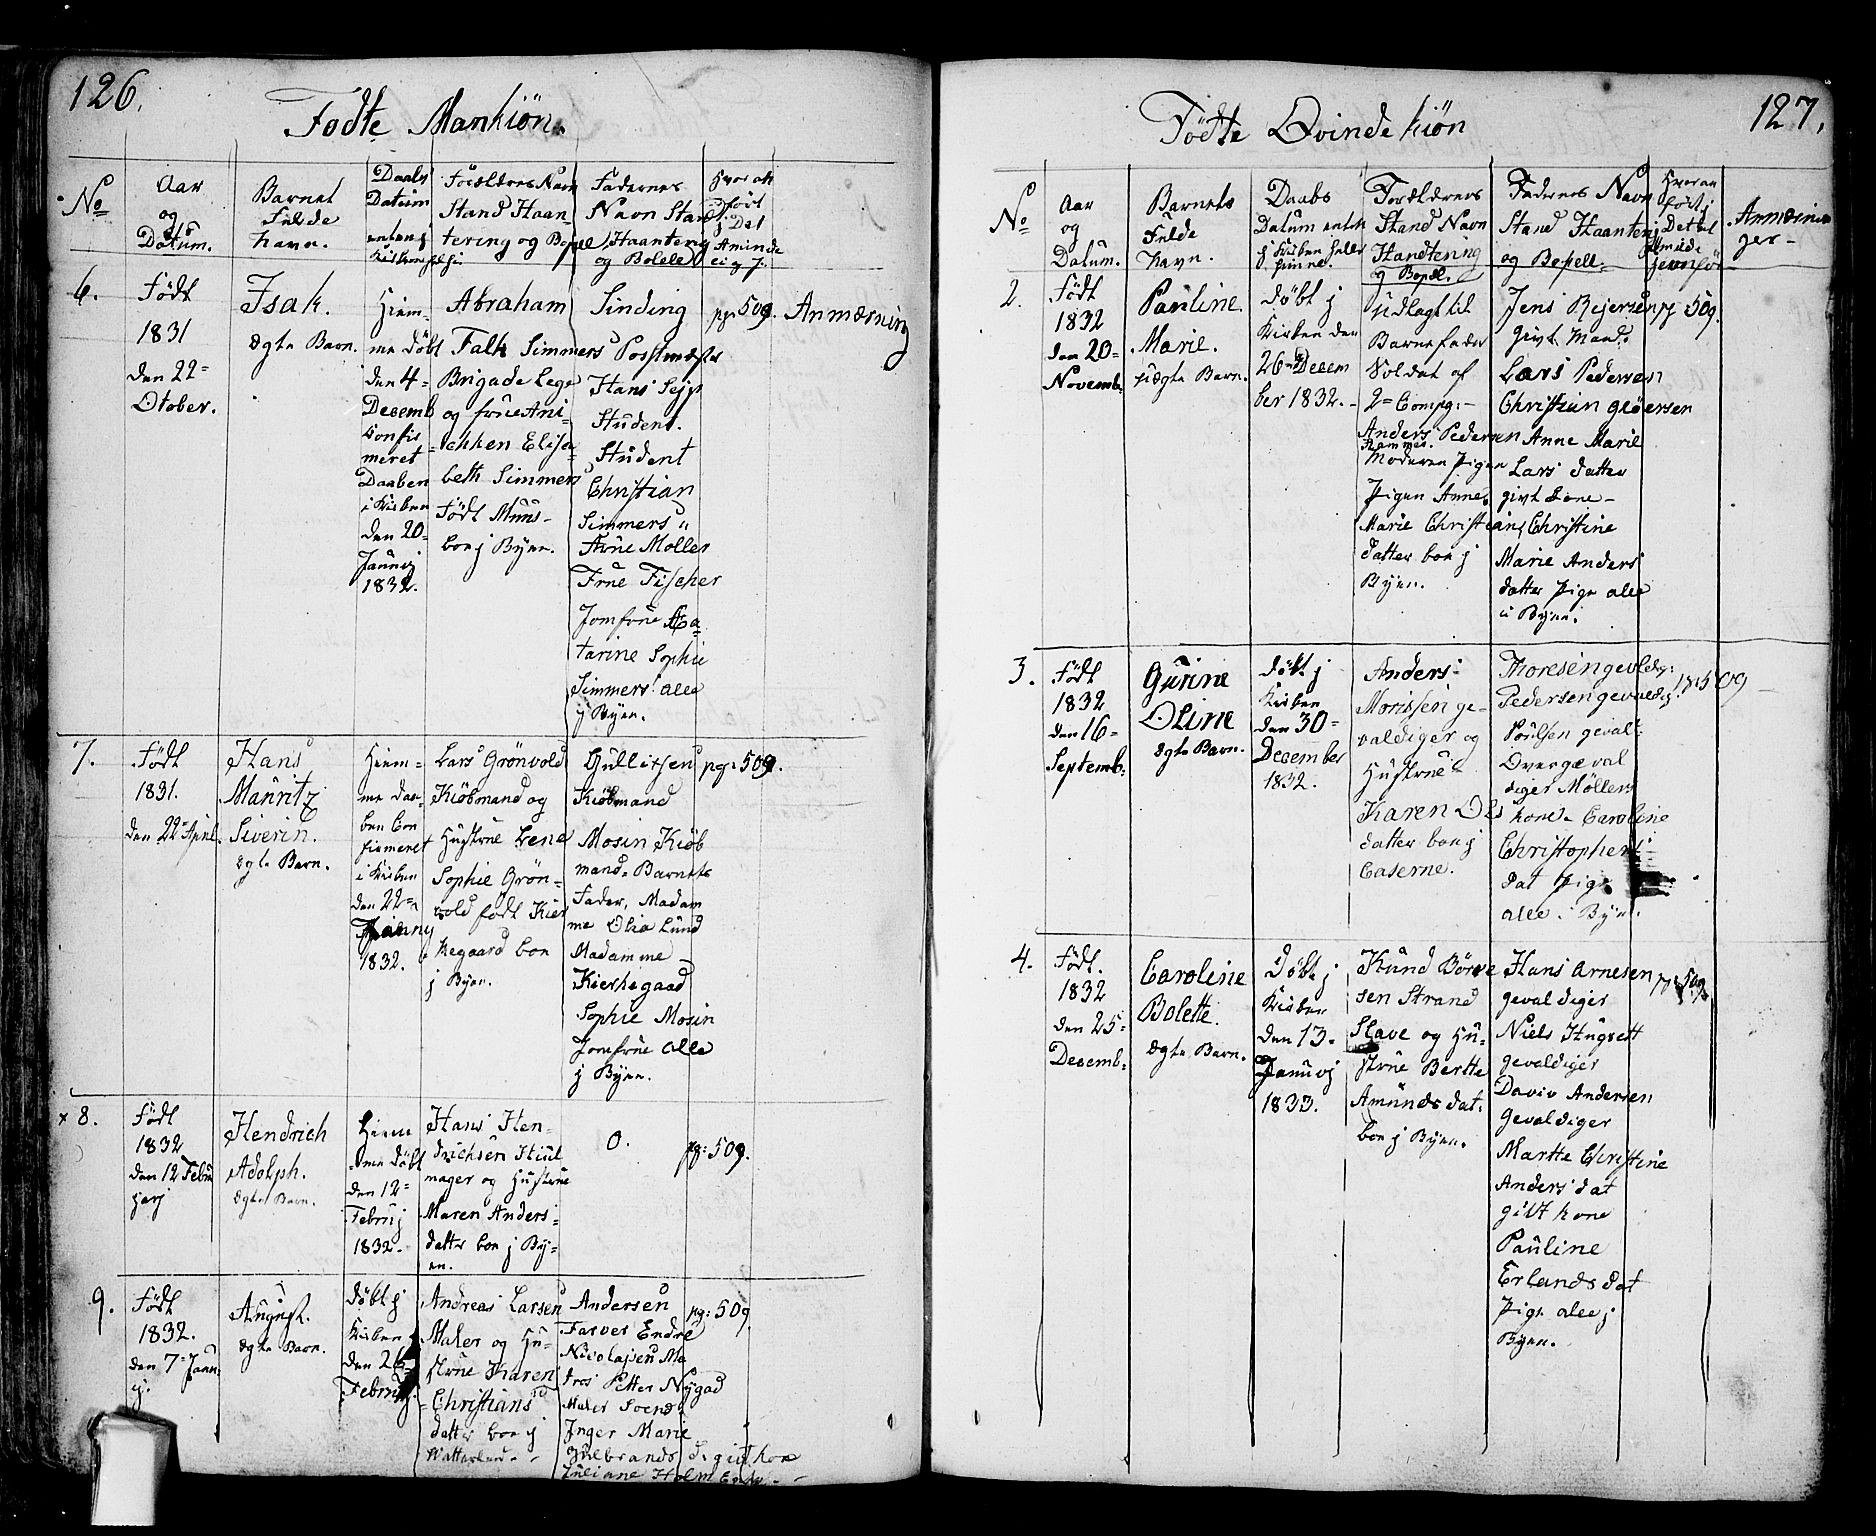 126.
Fødte Mankiön.
No
Aar
og
Datum.
Barnet
Fulde
Navn.
Daabs
Datum
enten j
Kirken
Forældres Navn
Stand Haan-
tering og Bopel
Fadernes
Navn Stand
Haantering
og Bolelse
Hvor an
fört
j Det
Aminde
6.
Födt
1831
den 22=
Otober.
Isak.
ægte Barn.
Hiem-
me döbt
den 4=
Decemb
Confir
meret
Daaben
i Kirken
den 20=
Januj
1832.
Abraham
Falk Simmers
Brigade Lege
og frue Ani-
ckken Elisa-
beth Simmers
født Muns-
boe j Byen.
Sinding
Postmæster
Hans Sejp
Student.
Student
Christian
Simmers "
Frue Moller
Frue Fischer
Jomfrue Ca=
tarine Sophie
Simmers alle
j Byen.
pg: 509.
Anmærning
7.
Födt
1831.
den 22= April.
Hans
Mauritz
Siverin.
ægte Barn.
Hiem-
me daa-
ben Con
firmeret
i Kirken
den 22=
Januj
1832.
Lars Grönvold
Kiöbmand og
Hustrue Lene
Sophie Grön-
vold födt Kier
kegaard boe
j Byen.
Gullitsen
Kiöbmand
Mosin Kiöb
mand. Barnets
Fader, Madam
me Olia Lund
Madamme
Kierkegaad
Sophie Mosin
Jomfrue alle
j Byen.
pg: 509.
x 8.
Födt
1832
den 12 Febru
arj
Hendrich
Adolph.
ægte Barn.
Hiem
me döbt
den 12=
Februj
1832.
Hans Hen-
drichsen Hiul
mager og Hustrue
Maren Anders-
datter boe j By-
en.
0.
pg: 509.
9.
Födt
1832.
den 7= Janu
j.
August.
ægte Barn.
Döbt j
Kirken
den 26=
Februj.
Andreas Larsen
Maler og Hu-
strue Karen
Christians
datter boe j
Watterland.
Andersen
Farver Endre
Nicolajsen Ma
tros Petter Nygad
Maler Svend
Inger Marie
Gulbrands D. givt kone
Juliane Holm Enke.
pg: 509
127.
Födte Qvinde kiön
No
Aar
og
Datum.
Barnets
Fulde
Navn.
Daabs
Datum enten
j Kirken heller
hiemme.
Forældrenes
Stand Navn
Handtering
og Bopel.
Fadernes Navn
Stand Haantering
og Bopell.
Hvor an
fört j
Det al
minde
Anmærnin
ger
2.
Födt
1832
den 20=
Novemb:
Pauline
Marie.
uægte Barn.
Döbt j
Kirken den
26= Decem
ber 1832.
Udlagt til
Barnefader
Soldat af
2= Comp:
Anders Pedersen
Moderen Pigen
Pigen Anne
Marie Christians
datter boe j
Byen.
Jens Rejersen
givt Mand
Lars Pedersen
Christian Glöersen
Anne Marie
Lars datter
givt kone
Christine
Marie Anders
datter Pige alle
i Byen.
pg 509.
3.
Födt
1832
den 16=
Septemb:
Gurine
Oline
ægte Barn.
Döbt j
Kirken
den 30=
December
1832.
Anders
Morissen ge-
valdiger og
Hustrue
Karen Ols
datter boe j
Caserne.
Thoresen gevldg:
Pedersen gevaldig
Poulsen geval:
Overgeval
diger Möllers
kone Caroline
Christophers
dat Pige
alle i Byen.
pg 509
4.
Födt.
1832
den 25=
Decemb:
Caroline
Bolette.
ægte Barn.
Döbt j
Kirken
den 13=
Januvj
1833.
Knud Börre
sen Strand
Slave og Hu-
strue Bertte
Amunds dat.
boe j Byen.
Hans Arnesen
gevaldiger
Niels Hugsett
gevaldiger
Daviv Andersen
Gevaldiger
Martte Christine
Anders dat
givt kone
Pauline
Erlands dat
Pige alle j
Byen.
pg: 509.